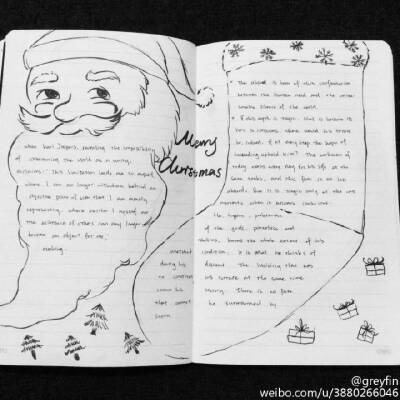 when Karl Jaspers, revealing the impossibility
of constituting the world as a unity,
exclaims: "This limitation leads me to myself,
where I can no longer withdraw behind an
objective point of view that I am merely
representing, where neither I myself nor
the existence of others can any longer
become an object for me,"
evoking
Merry
Christmas
The absurd is born of this confrontation
between the human need and the unrea-
sonable silence of the world.
If this myth is tragic, that is because its
hero is conscious. Where would his torture
be, indeed, if at every step the hope of
succeeding upheld him? The workman of
today works every day in his life at the
same tasks, and this fate is no less
absurd. But it is tragic only at the rare
moments when it becomes conscious.
of the gods, powerless and
knows the whole extent of his
condition: it is what he thinks of
descent. The lucidity that was
his torture at the same time
victory. There is no fate
be surmounted by
@greyfin
weibo.com/u/3880266046